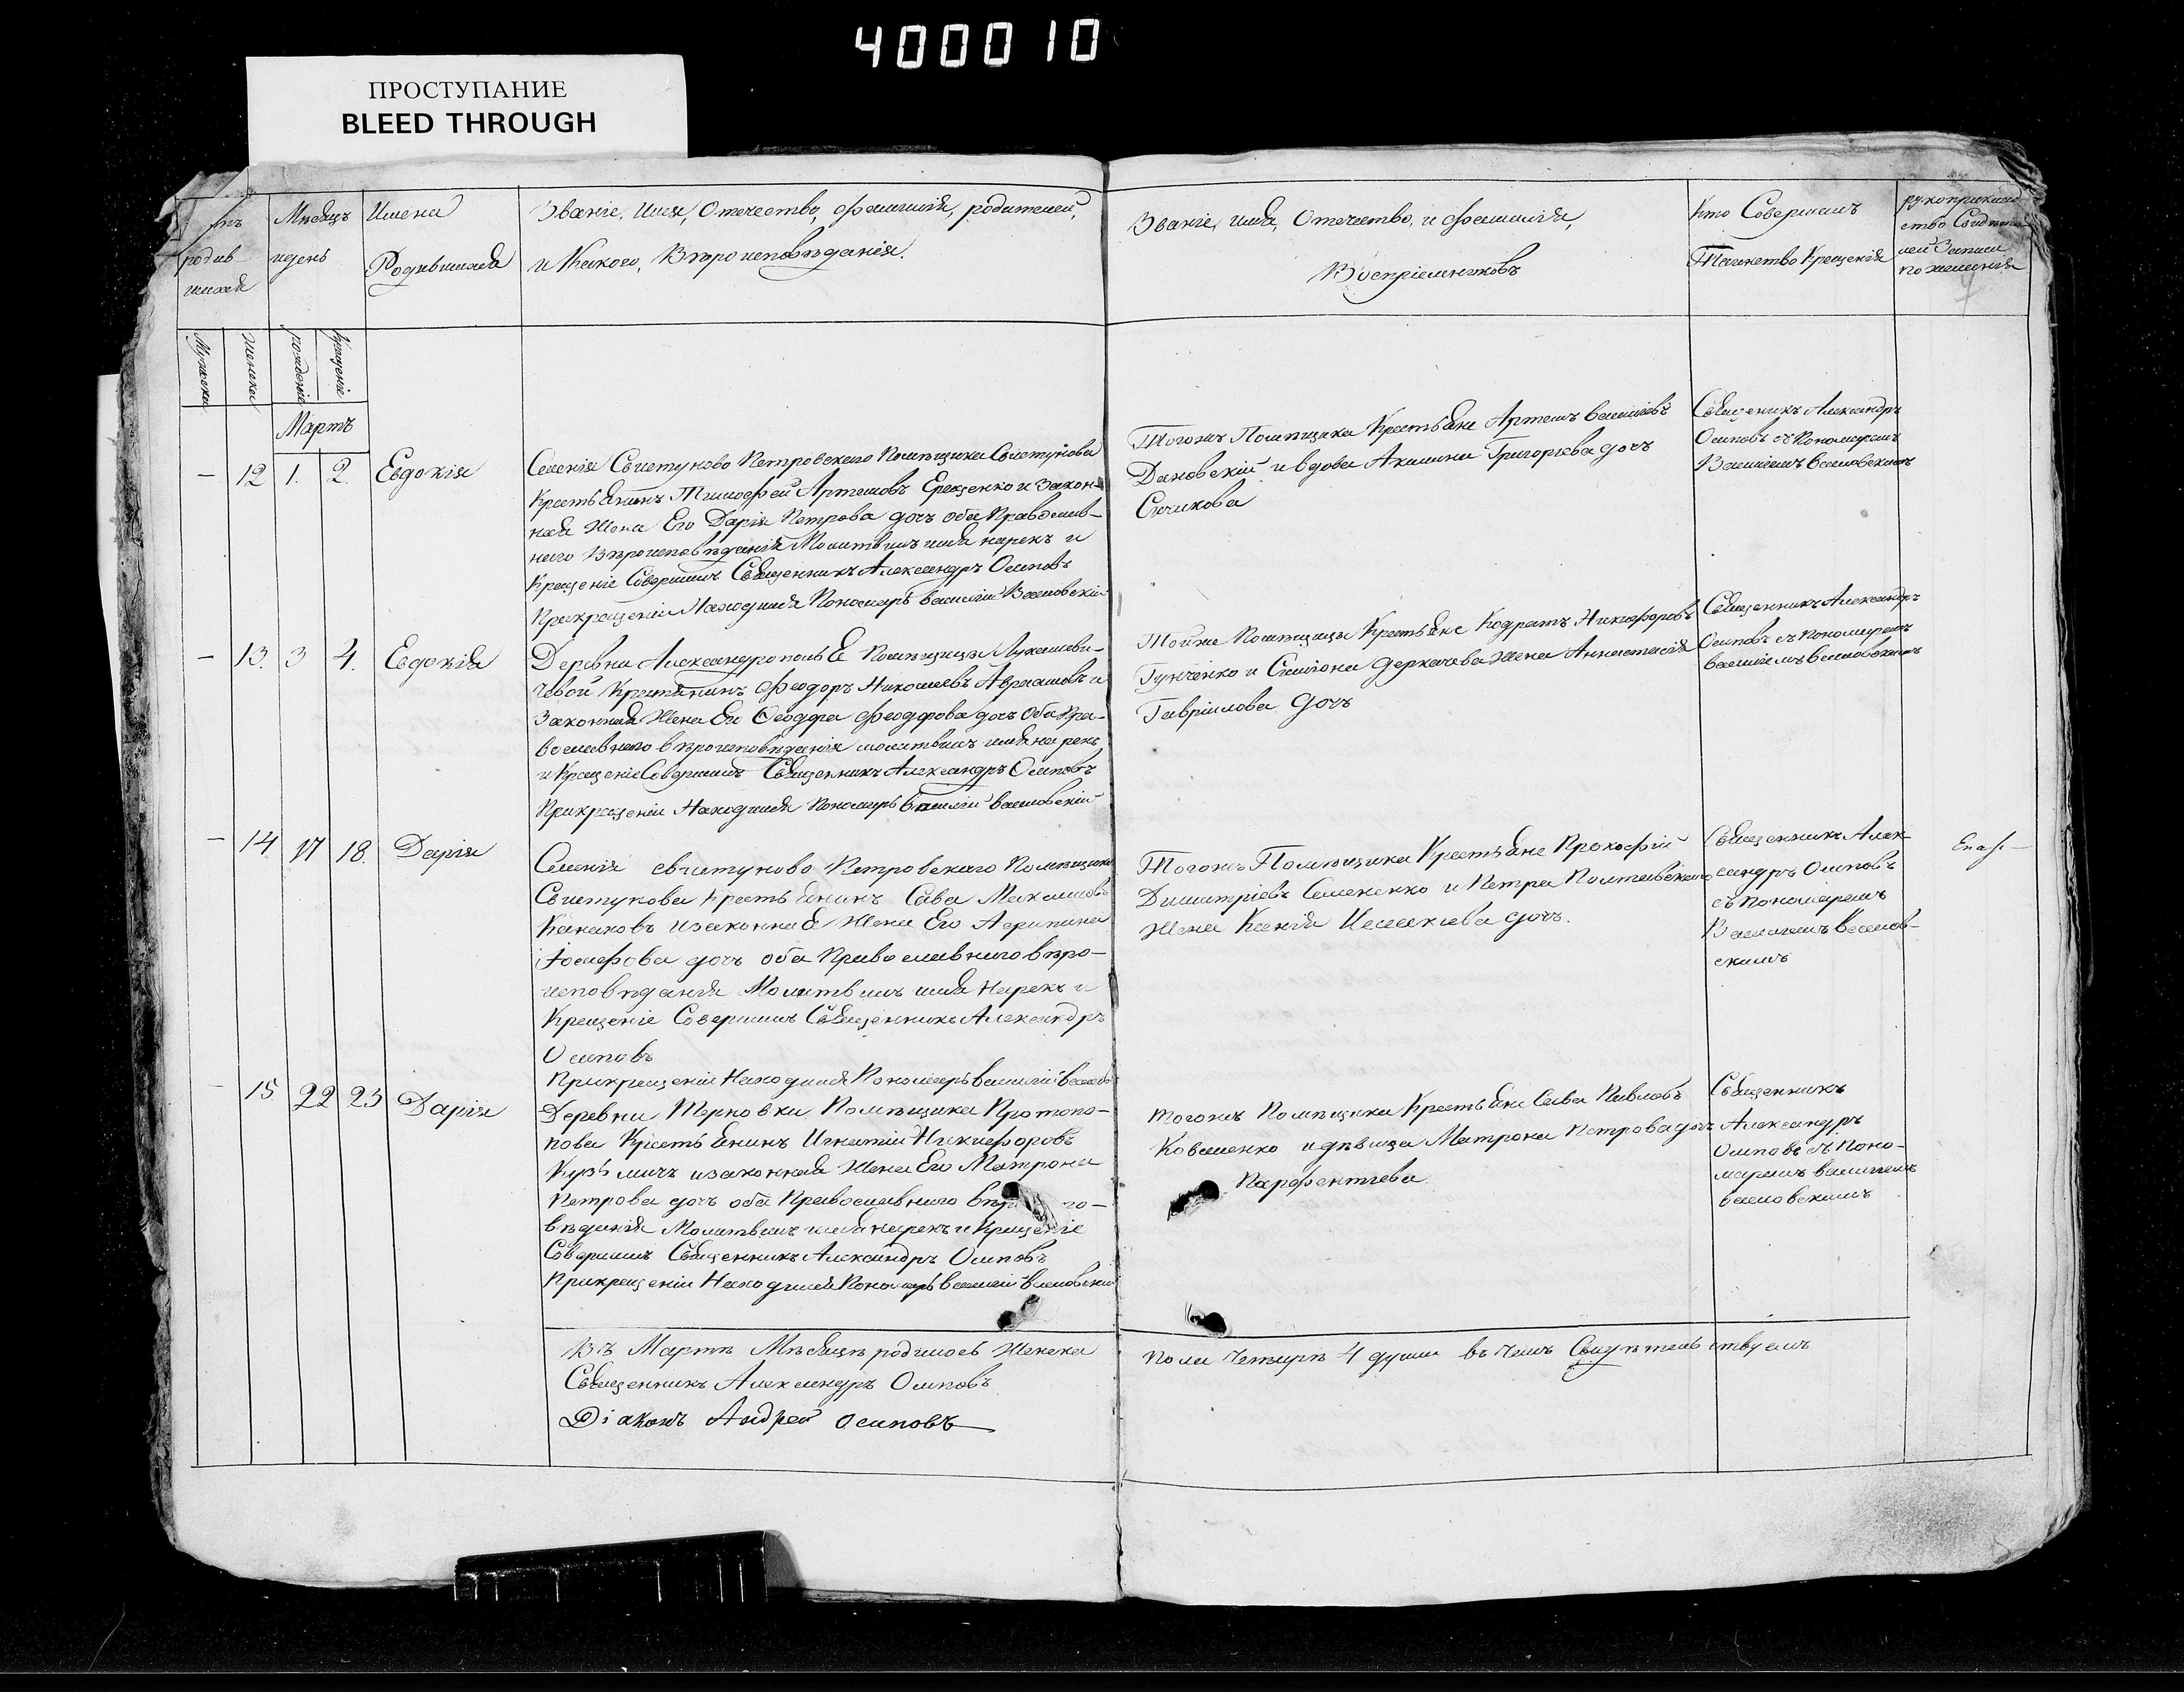 400010
ПРОСТУПАНИЕ
BLEED THROUGH
родив-
шихся
Мѣсяцъ
идень
Имена
Родившихся
Званіе, Имя, Отечество, фамилія, родителей,
и Какого, Вѣроисповѣданія.
Званіе, имя, Отечество, и фамилія,
Воспріемниковъ
Кто Совершалъ
Таинство Крещенія
рукоприклад
ство Свидѣте
лей Записи
по желанія
Мужеска
Женска
рожденіе
Крещеніе
Мартъ
— 12 1. 2. Евдокія
Селенія Свистуново Петровскаго Помѣщика Свистунова
Крестьянинъ Тимофей Артемовъ Ерещенко и Закон-
ная Жена Его Дарія Петрова дочь оба Православ-
наго Вѣроисповѣданія Молитвилъ имя нарекъ и
Крещеніе Совершилъ Священникъ Александръ Осиповъ
Прикрещеніи Находился Пономарь василій Василовскій
Тогожъ Помѣщика Крестьяне Артемъ василіевъ
Дановскій и вдова Акилина Григорьева дочь
Сичикова
Священикъ Александръ
Осиповъ съ Пономаремъ
Василіемъ Василовскимъ
— 13. 3 4. Евдокія
Деревни Александрополья Помѣщицы Лукашеви-
чевой Крестянинъ Феодоръ Николаевъ Аврамовъ и
Законная Жена Его Феодора Феодорова дочь Оба Пра-
вославнаго вѣроисповѣданія молитвилъ имя на рекъ
и Крещеніе Совершилъ Священникъ Александръ Осиповъ
Прикрещеніи Находился Пономарь василій василовскій
Тойже Помѣщицы Крестьяне Кодратъ Никифоровъ
Гунченко и Симіона Деркачева Жена Анастасія
Гавріилова Дочь
Священникъ Александръ
Осиповъ съ Пономаремъ
василіемъ василовскимъ
— 14 17 18. Дарія
Селенія свистуново Петровскаго Помѣщика
Свистунова Крестьянинъ Сава Максимовъ
Канаковъ изаконная Жена Его Агрипина
Іосифова дочь оба Православнаго вѣро-
исповѣданія Молитвилъ имя Нарекъ и
Крещеніе Совершилъ Священникъ Александръ
Осиповъ
Прикрещеніи Находился Пономарь василій василов
Тогожъ Помѣщика Крестьяне Прокофій
Димитріевъ Семененко и Петра Полтавскаго
Жена Ксенія Исаакіева дочь.
Священникъ Алек-
сандръ Осиповъ
съ Пономаремъ
Василіемъ Василов-
скимъ
— 15 22 23 Дарія
Деревни Терновки Помѣщика Протопо-
пова Крестьянинъ Игнатій Никифоровъ
Кузьмичъ изаконная Жена Его Матрона
Петрова дочь оба Православнаго
вѣданія Молитвилъ имя нарекъ и Крещеніе
Совершилъ Священникъ Александръ Осиповъ
Прикрещеніи Находился Пономарь василій василовскій
тогожъ Помѣщика Крестьяне Сава Павловъ
Коваленко и дѣвица Матрона Петрова дочь
Парфентіева
Священникъ
Александръ
Осиповъ съ Поно-
маремъ василіемъ
василовскимъ
Въ Мартѣ Мѣсяцѣ родилось Женска
пола Четыре 4 души въ чемъ Свидѣтельствуемъ
Священникъ Александръ Осиповъ
Діаконъ Андрей Осиповъ